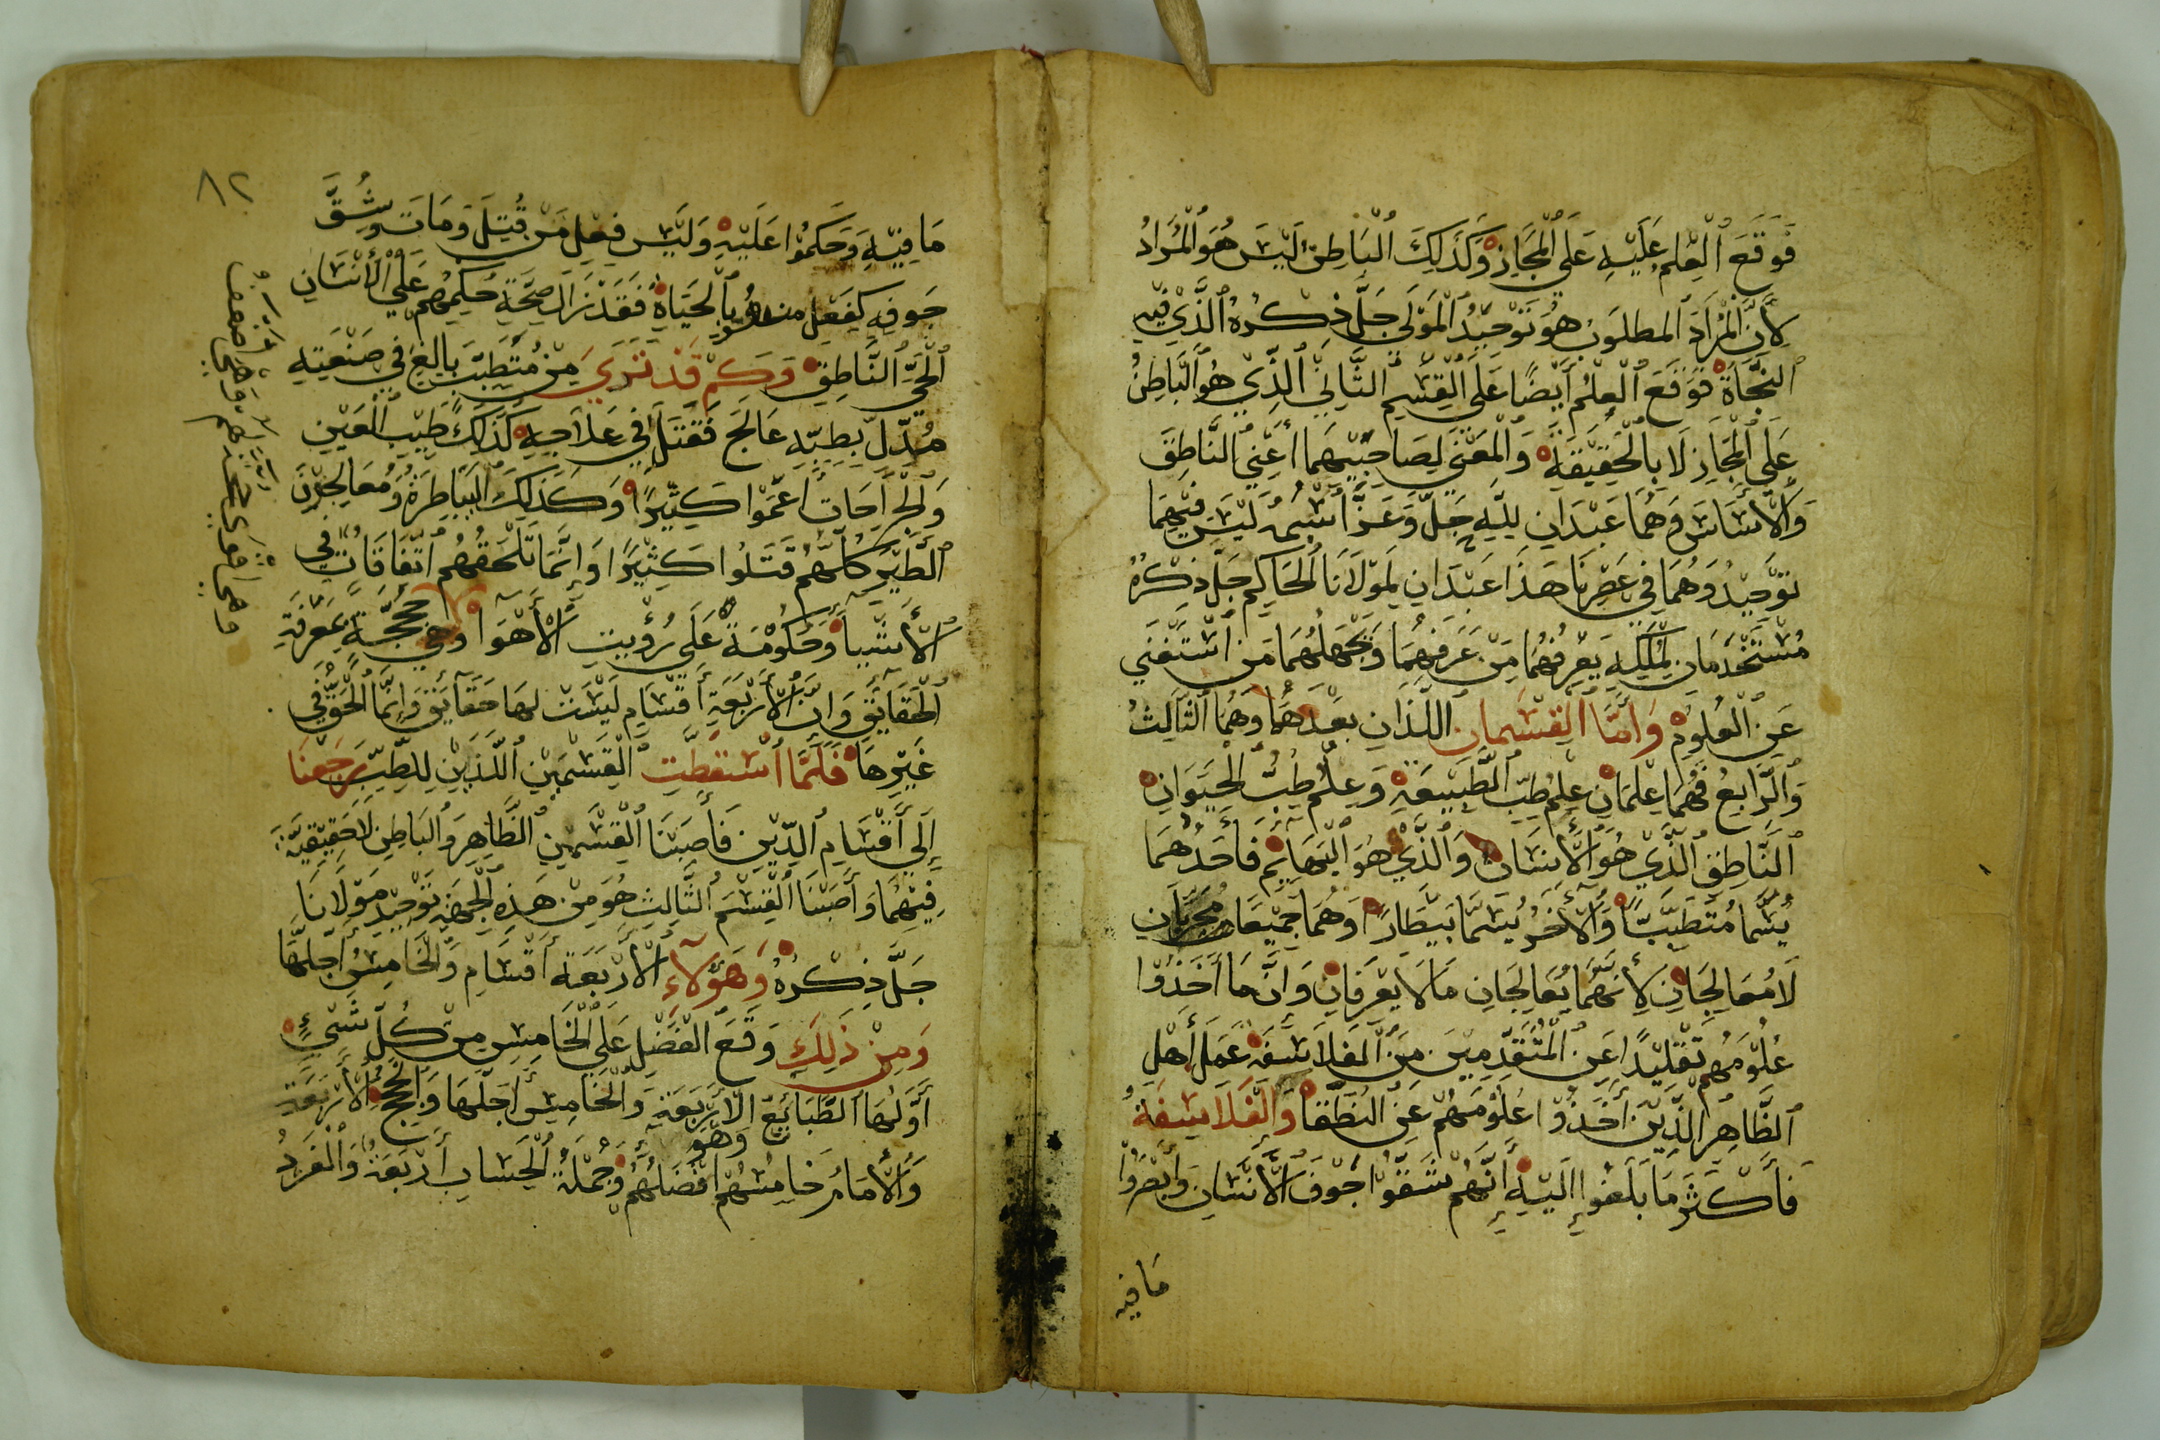 فَوَقَعَ ٱلْعِلْمُ عَلَيْهِ عَلَى ٱلْمَجَازِ وَكَذَلِكَ ٱلْبَاطِنُ لَيْسَ هُوَ ٱلْمُرَادُ
لِأَنَّ ٱلْمُرَادَ ٱلمطلوبَ هُوَ تَوْحِيْدُ ٱلْمَوْلَى جَلَّ ذِكْرُهُ ٱلَّذِيْ فِيْهِ
ٱلنَّجَاةُ فَوَقَعَ ٱلْعِلْمُ أَيْضًا عَلَى ٱلْقِسْمِ ٱلثَّانِيْ ٱلَّذِيْ هُوَ ٱلْبَاطِنُ
عَلَى ٱلْمَجَازِ لَا بِٱلْحَقِيْقَةِ وَٱلْمَعْنَى لِصَاحِبَيْهِمَا أَعْنِيْ ٱلنَّاطِقَ
وَٱلْأَسَاسَ وَهُمَا عَبْدَانِ لِلَّهِ جَلَّ وَعَزَّ ٱسْمُهُ لَيْسَ فِيْهِمَا
تَوْحِيْدُ وَهُمَا فِي عَصْرِنَا هَذَا عَبْدَانِ لِمَوْلَانَا ٱلْحَاكِمِ جَلَّ ذِكْرُهُ
مُسْتَخْدَمَانِ لِمُلْكِهِ يَعْرِفُهُمَا مَنْ عَرَفَهُمَا وَيَجْهَلُهُمَا مَنِ ٱسْتَغْنَى
عَنِ ٱلْعُلُوْمِ وَأَمَّا ٱلْقِسْمَانِ ٱللَّذَانِ بَعْدَهُمَا وَهُمَا ٱلثَّالِثُ
وَٱلرَّابِعُ فَهُمَا عِلْمَانِ عِلْمُ طِبِّ ٱلطَّبِيْعَةِ وَعِلْمُ طِبِّ ٱلْحَيَوَانِ
ٱلنَّاطِقِ ٱلَّذِيْ هُوَ ٱلْأَنْسَانُ وَٱلَّذِيْ هُوَ ٱلْبَهَايِمُ فَأَحَدُهُمَا
يُسَمَّا مُتَطَبِّبًا وَٱلْأَخَرُ يُسَمَّا بَيْطَارًا وَهُمَا جَمِيْعًا مُجَرِّبَانِ
لَا مُعَالِجَانِ لِأَنَّهُمَا يُعَالِجَانِ مَا لَا يَعْرِفَانِ وَأَنَّمَا أَخَذُوْا
عُلُوْمَهُمْ تَقْلِيْدًا عَنِ ٱلْمُتَقَدِّمِيْنَ مِنَ ٱلْفَلَاسَفَةِ عَمَلَ أَهْلِ
ٱلظَّاهِرِ ٱلَّذِيْنَ أَخَذُوْا عُلُوْمَهُمْ عَنِ ٱلنُّطَقَا وَٱلْفَلَاسِفَةُ
فَأَكْثَرُ مَا بَلَغُوا إِلَيْهِ أَنَّهُمْ شَقُّوْا جَوْفَ ٱلْأَنْسَانِ وَأَبْصَرُوْا
مَا فِيْهِ
٨٢
مَا فِيْهِ وَحَكَمُوْا عَلَيْهِ وَلَيْسَ فِعْلُ مَنْ قُتِلَ وَمَاتَ وَشُقَّ
جَوفه كَفِعْلِ من هُو بِٱلْحَيَاةِ فَقَدْ نَزَالَ صِحَّةُ حُكْمِهِمْ عَلَى ٱلْأَنْسَانِ
ٱلْحَيِّ ٱلنَّاطِقِ وَكَمْ قَدْ نَرَى مِنْ مُتَطَبِّبٍ بَالِغٍ فِي صَنْعَتِهِ
مُدِلّ بِطِبِّهِ عَالَجَ فَقَتَلَ فِي عَلَاجِهِ كَذَلِكَ طَبِيْبُ ٱلْعَيْنِ
وَٱلْجِرَاحَاتِ أَعْمَوْا كَثِيْرًا وَكَذَلِكَ ٱلْبَيَاطِرَةُ وَمُعَالِجِيْنَ
ٱلطَّيْرِ كُلُّهُم قَتَلُوا كَثِيْرًا وَإِنَّمَا تَلْحَقُهُم ٱتِّفَاقَاتٌ فِي
ٱلْأَشْيَا وَحُكُوْمَةً عَلَى رُؤْيِتِ ٱلْأَهْوَا وَهِي حُجَّةٌ مَعْرِفَةِ
ٱلْحَقَآيِقِ وَأَنَّ ٱلْأَرْبَعَةَ أَقْسَامٍ لَيْسَتْ لَهَا حَقَآيِقُ وَإِنَّمَا ٱلْحَقُّ فِي
غَيْرِهَا فَلَمَّا أَسْقَطْتُ ٱلْقِسْمَيْنِ ٱللَّذَيْنِ لِلطِّبِّ رَجَعْنَا
إِلَى أَقْسَامِ ٱلدِّيْنِ فَأَصَبْنَا ٱلْقِسْمَيْنِ ٱلظَّاهِرَ وَٱلْبَاطِنَ لَاحَقِيْقِيَّةَ
فِيْهِمَا وَأَصَبْنَا ٱلْقِسْمَ ٱلثَّالِثَ هُوَ مِنْ هَذِهِ ٱلْجِهَةِ تَوْحِيْدَ مَوْلَانَا
جَلَّ ذِكْرُهُ وَهَؤُلَآءِ ٱلْأَرْبَعَةُ أَقْسَامٍ وَٱلْخَامِسُ أَجَلُّهَا
وَمِنْ ذَلِكَ وَقَعَ ٱلْفَضْلُ عَلَى ٱلْخَامِسِ مِنْ كُلِّ شَيْءٍ
أَوَّلُهَا ٱلطَّبَائِعُ ٱلْأَرْبَعَةُ وَٱلْخَامِسُ أَجَلُّهَا وَٱلْحُجَجُ ٱلْأَرْبَعَةُ
وَٱلْأمَامُ خَامِسُهُمْ وَهُوَ أَفْضَلُهُمْ وَجُمْلَةُ ٱلْحِسَابِ أَرْبَعَةٌ وَٱلْفَرْدُ